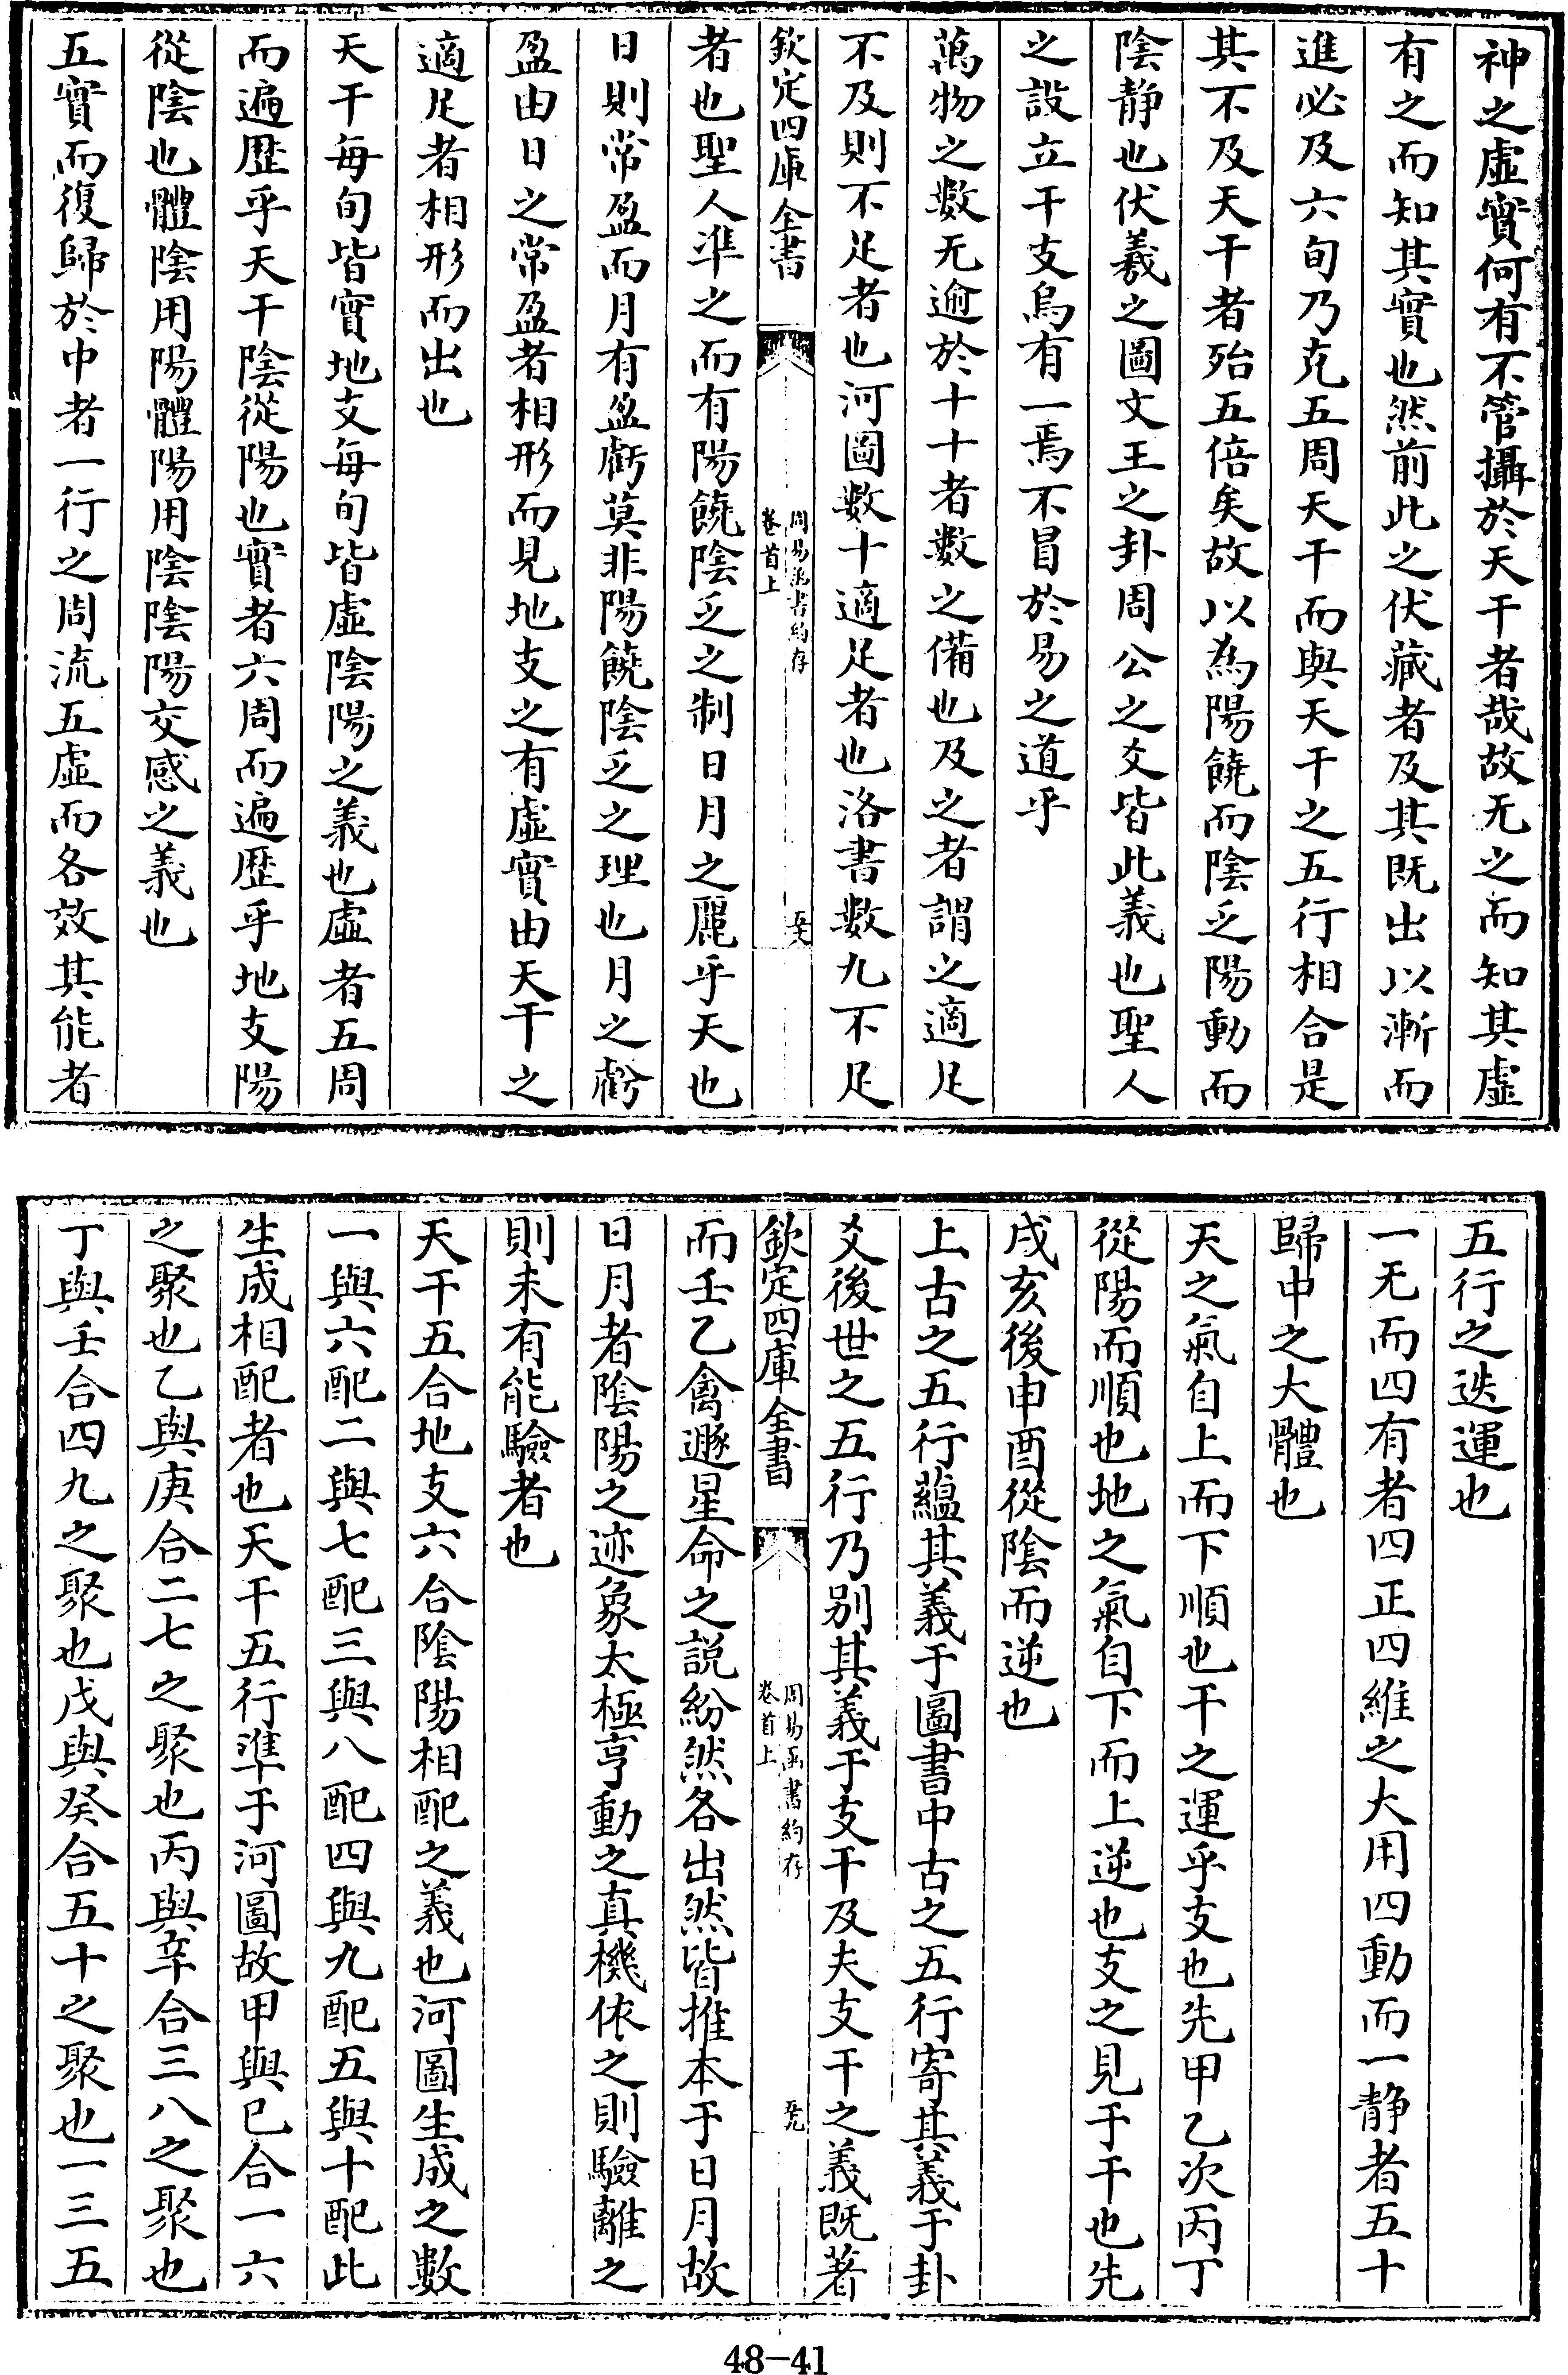 神之虛實何有不管攝於天干者哉故无之而知其虛
有之而知其實也然前此之伏藏者及其既出以漸而
進必及六旬乃克五周天干而與天干之五行相合是
其不及天干者殆五倍矣故以為陽饒而陰乏陽動而
陰静也伏羲之圖文王之卦周公之爻皆此義也聖人
之設立干支烏有一焉不冒於易之道乎
萬物之數无逾於十十者數之備也及之者謂之適足
不及則不足者也河圖數十適足者也洛書數九不足
欽定四庫全書
周易函書約存
卷首上
五六
者也聖人準之而有陽饒陰乏之制日月之麗乎天也
日則常盈而月有盈虧莫非陽饒陰乏之理也月之虧
盈由日之常盈者相形而見地支之有虛實由天干之
適足者相形而出也
天干每旬皆實地支每旬皆虛陰陽之義也虛者五周
而遍歷乎天干陰從陽也實者六周而遍歷乎地支陽
從陰也體陰用陽體陽用陰陰陽交感之義也
五實而復歸於中者一行之周流五虛而各效其能者
五行之迭運也
一无而四有者四正四維之大用四動而一静者五十
歸中之大體也
天之氣自上而下順也干之運乎支也先甲乙次丙丁
從陽而順也地之氣自下而上逆也支之見于干也先
戌亥後申酉從陰而逆也
上古之五行蘊其義于圖書中古之五行寄其義于卦
爻後世之五行乃别其義于支干及夫支干之義既著
欽定四庫全書
周易函書約存
卷首上
五九
而壬乙禽遯星命之説紛然各出然皆推本于日月故
日月者陰陽之迹象太極亨動之真機依之則驗離之
則未有能驗者也
天干五合地支六合陰陽相配之義也河圖生成之數
一與六配二與七配三與八配四與九配五與十配此
生成相配者也天干五行準于河圖故甲與已合一六
之聚也乙與庚合二七之聚也丙與辛合三八之聚也
丁與壬合四九之聚也戊與癸合五十之聚也一三五
48-41